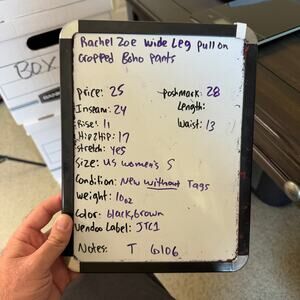 BOX
Rachel Zoe wide Leg pull on
cropped Boho pants
price: 25
poshmark: 28
Inseam: 24
Length:
Rise: 11
Waist: 13
Hip2Hip: 17
stretch: yes
Size: US women's S
Condition: New without Tags
weight: 10oz
Color: black, brown
Vendoo Label: JTC1
Notes: T 6106